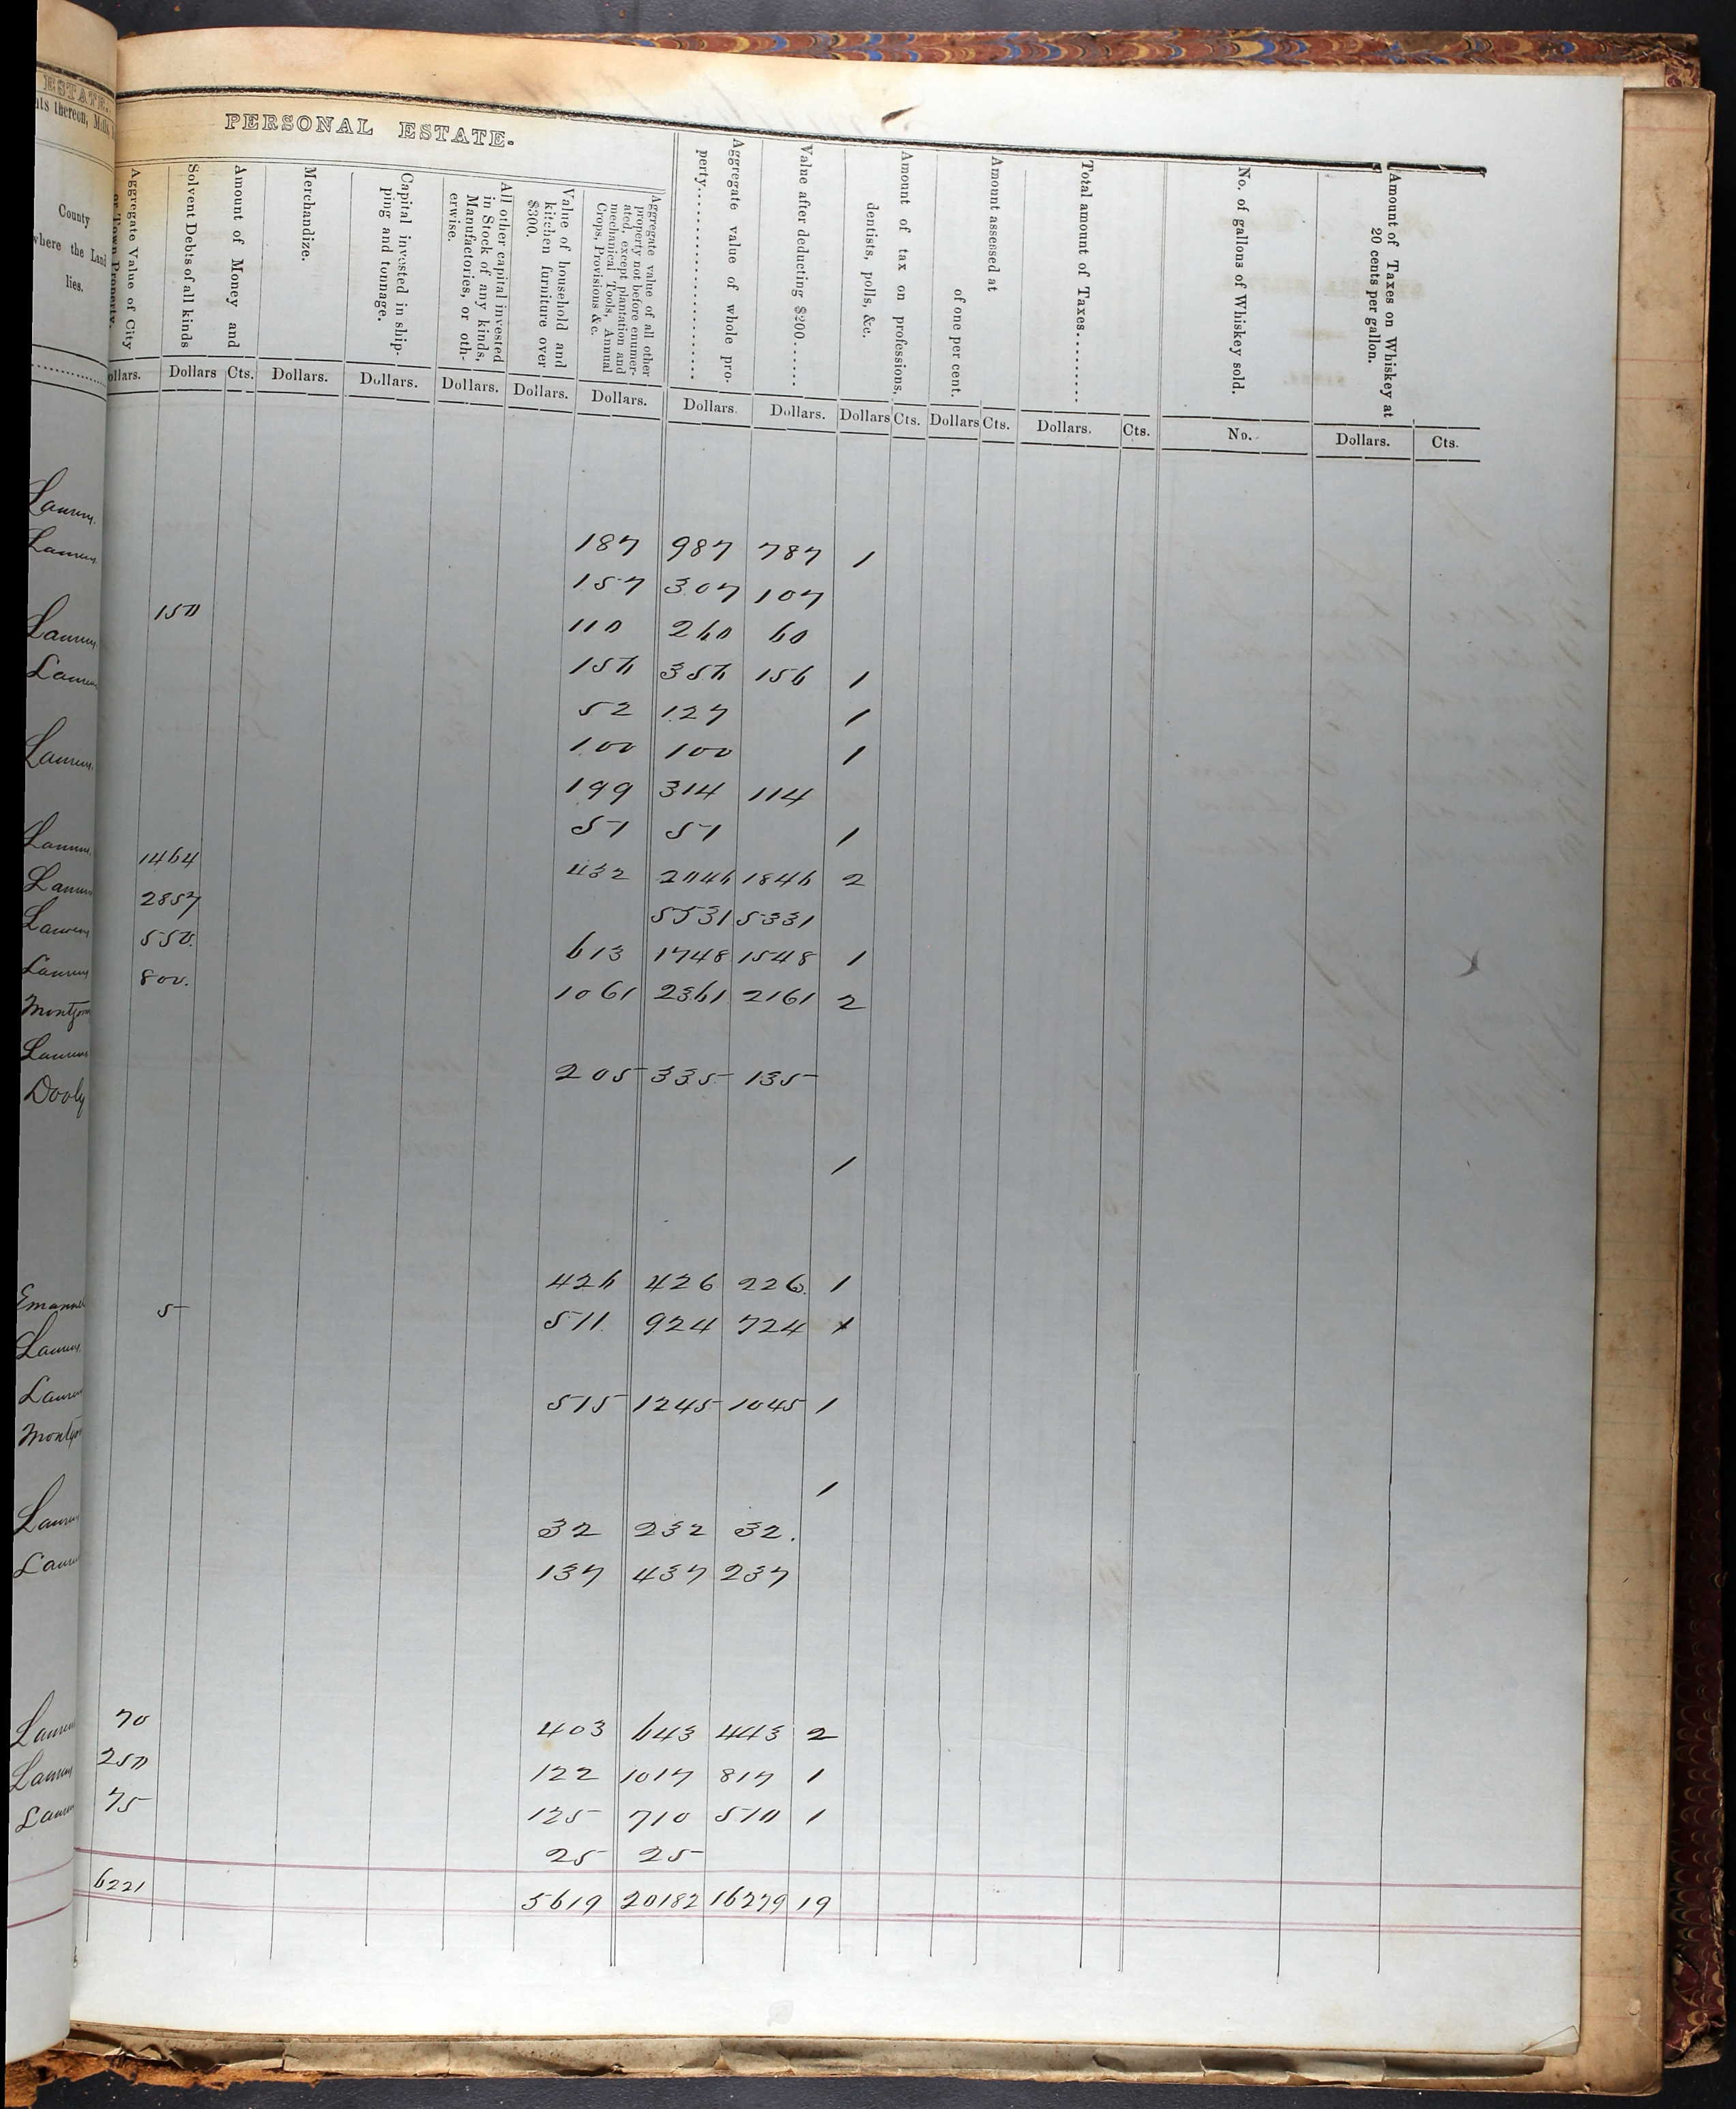 ESTATE.
nts thereon,
County
where the Land
lies.
PERSONAL ESTATE.
Aggregate Value of City
or Town Property.
Solvent Debts of all kinds
Amount of Money and
Merchandize.
Capital invested in ship-
ping and tonnage.
All other capital invested
in Stock of any kinds,
Manufactories, or oth-
erwise.
Value of household and
kitchen furniture over
$300.
Aggregate value of all other
property not before enumer-
ated, except plantation and
mechanical Tools, Annual
Crops, Provisions &c.
Aggregate value of whole pro-
perty
Value after deducting $200
Amount of tax on professions,
dentists, polls, &c.
Amount assessed at
of one per cent.
Total amount of Taxes
No. of gallons of Whiskey sold.
Amount of Taxes on Whiskey at
20 cents per gallon.
ollars. Dollars Cts. Dollars. Dollars. Dollars. Dollars. Dollars. Dollars. Dollars. Dollars Cts. Dollars Cts. Dollars. Cts. No. Dollars. Cts.
Laurens.
Laurens 187 987 787 1
157 307 107
Laurens 150 110 260 60
Laurens 156 356 156 1
52 127 1
Laurens. 100 100 1
199 314 114
Laurens. 51 51 1
Laurens 1464 432 2046 1846 2
Laurens 2857 5531 5331
Laurens 550. 613 1748 1548 1
Montgom 800. 1061 2361 2161 2
Laurens
Dooly 205 335 135
1
Emanuel 426 426 226. 1
Laurens. 5 511. 924 724 1
Laurens 515 1245 1045 1
Montgom
1
Laurens 32 232 32.
Laurens 137 437 237
Laurens 70 403 643 443 2
Laurens 250 122 1017 817 1
Laurens 75 125 710 510 1
25 25
6221 5619 20182 16279 19